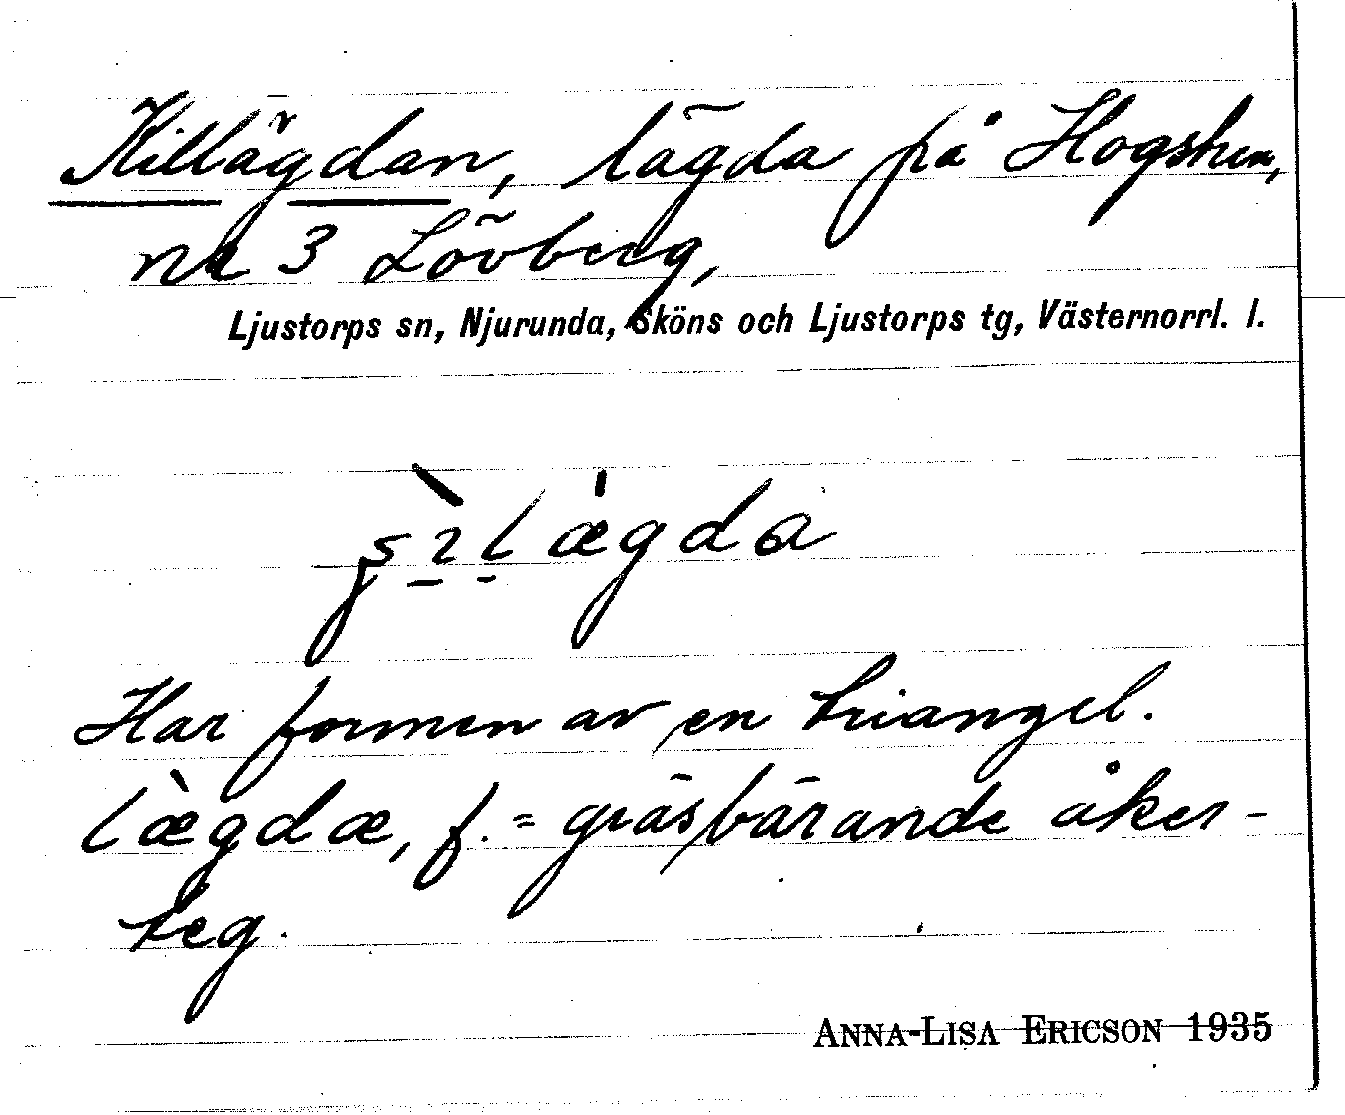 Killägdan, lägda på Hogsken,
nr 3 Lövberg,
Ljustorps sn, Njurunda, Sköns och Ljustorps tg, Västernorrl. l.
lægda
Har formen av en triangel.
lægdæ, f. = gräsbärande åker-
teg.
ANNA-LISA ERICSON 1935